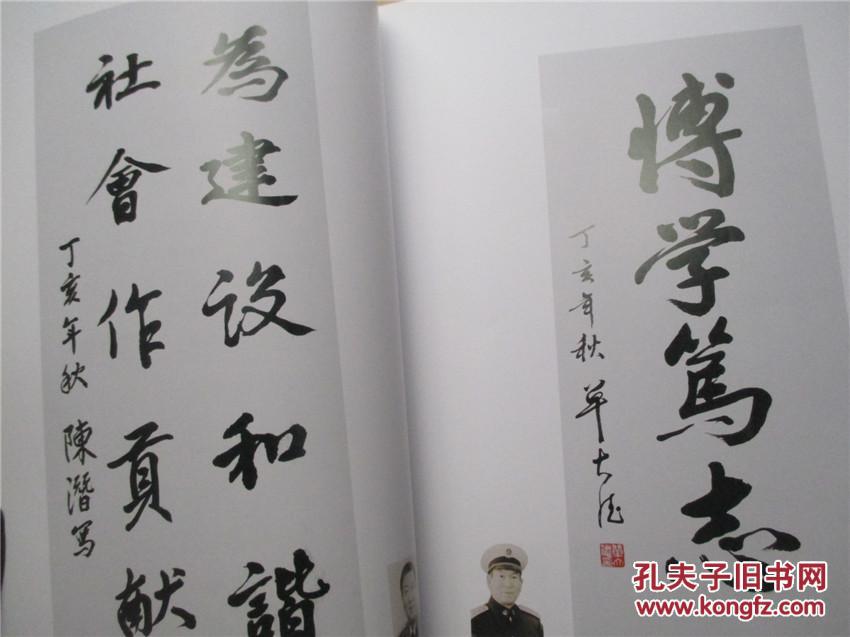 為建设和諧
社會作貢献
丁亥年秋 陳潛写
博学篤志
丁亥年秋 单大德
孔夫子旧书网
www.kongfz.com